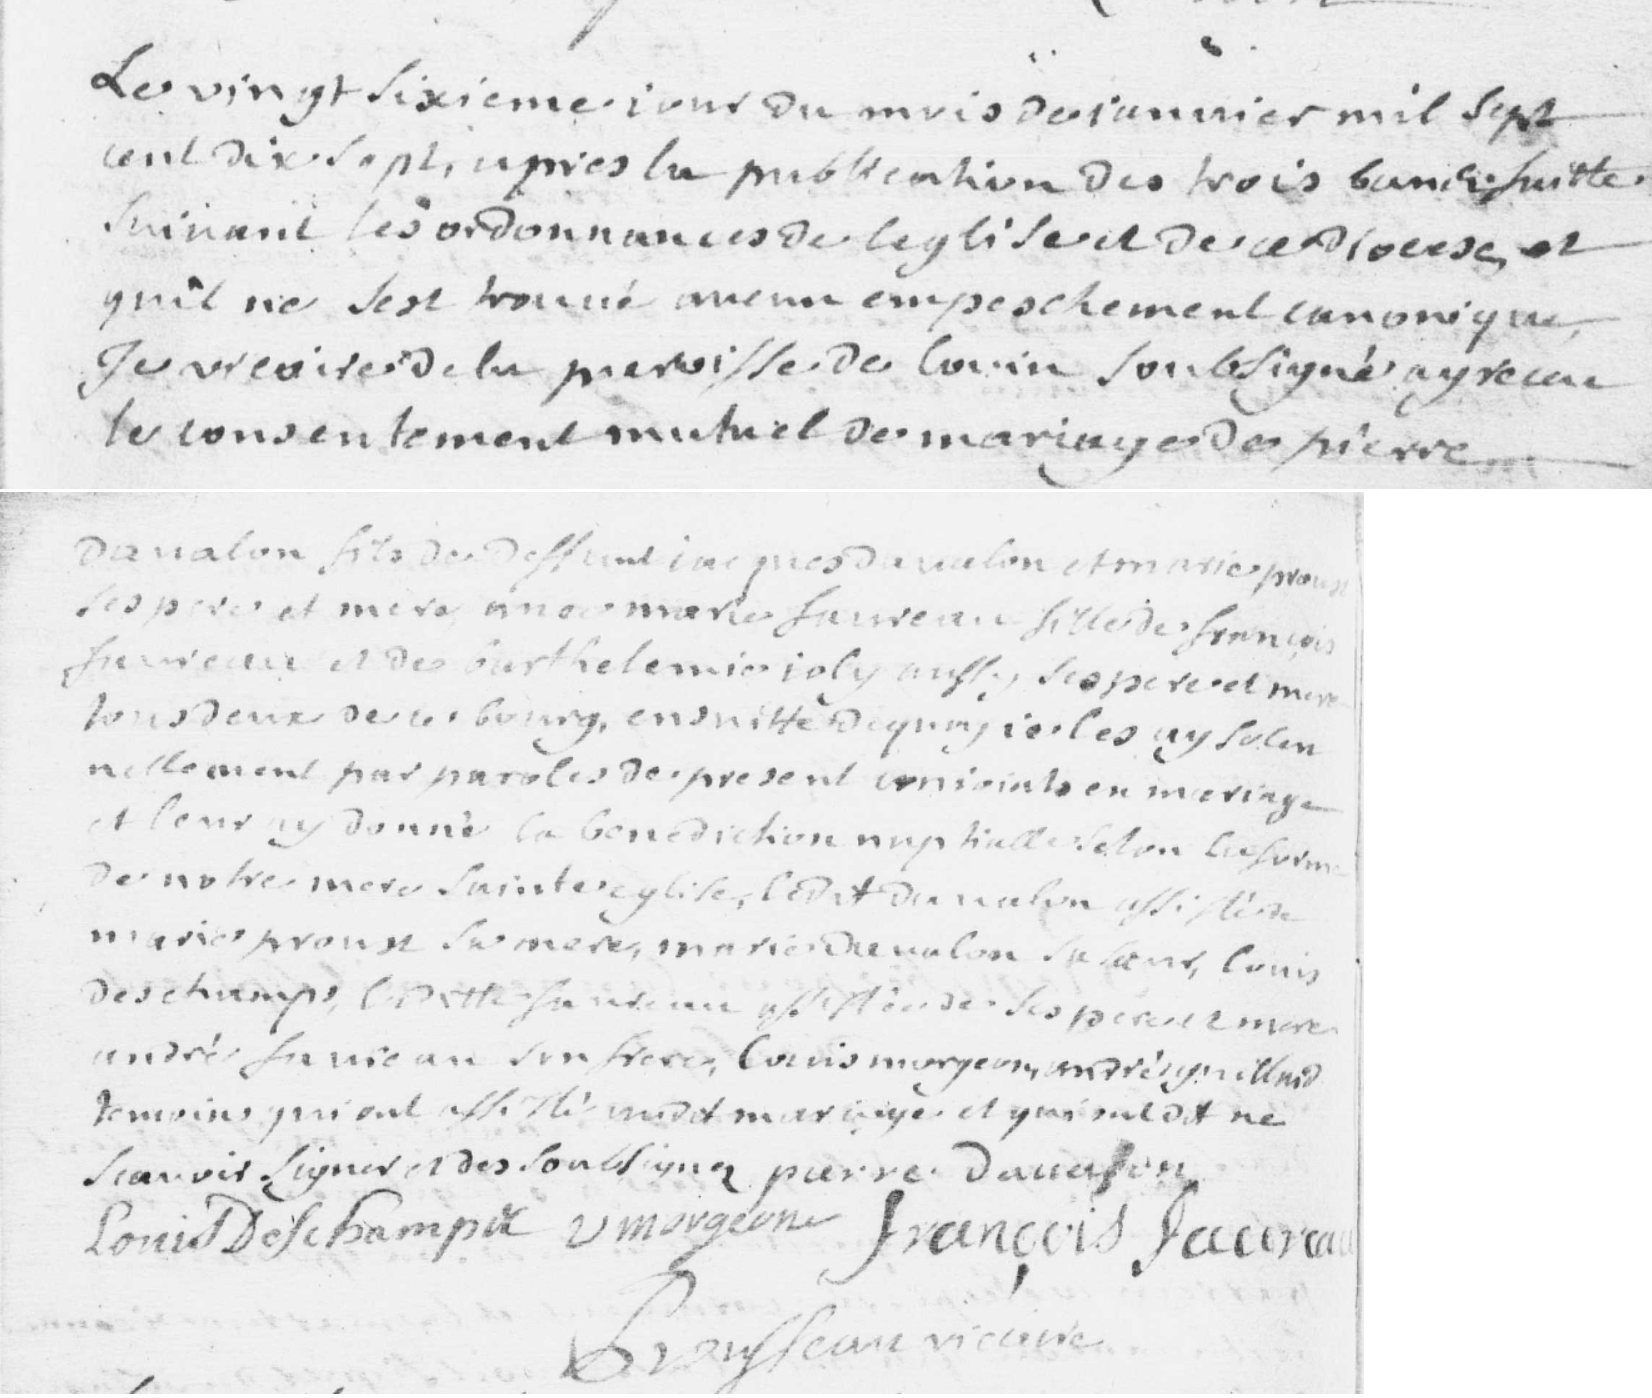 Le vingt sixieme iour du mois de ianuier mil sept
cent dix sept, apres la publication des trois bancs faitte
suiuant les ordonnances de leglise et de ce diocese, et
quil ne sest trouué aucun empeschement canonique,
Je vicaire de la paroisse de louin soubsigné ay receu
le consentement mutuel de mariage de pierre
Daualon fils de deffunt iacques Daualon et marie proust
ses pere et mere, et marie faureau fille de françois
faureau et de barthelemie ioly aussy ses pere et mere
tous deux de ce bourg, ensuitte dequoy ie les ay solen
nellement par paroles de present conioints en mariage
et leur ay donné la benediction nuptialle selon la forme
de notre mere sainte eglise, ledit daualon assisté de
marie proust sa mere, marie daualon sa sœur, louis
deschamps, laditte faureau assistée de ses pere et mere
andré faureau son frere, louis morgeon, andré guilland
temoins qui ont assisté audit mariage et qui ont dit ne
scauoir signer et des soubsignez pierre daualon
Louis Deschamps morgeon françois faureau
vicaire